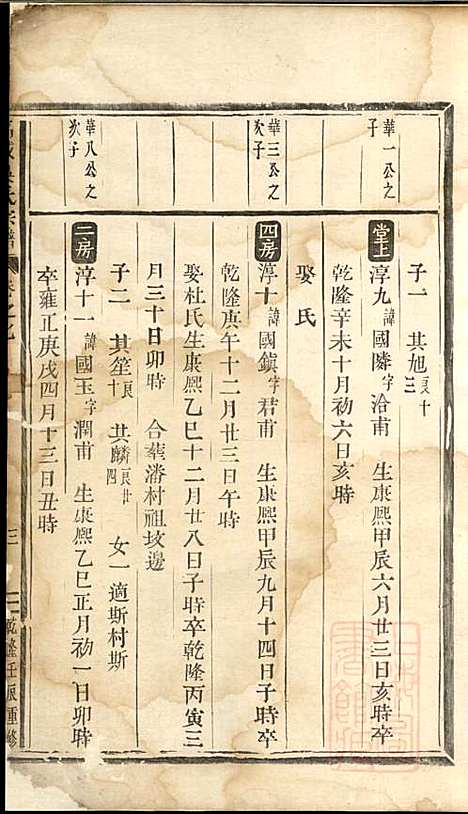 華一公之
子
華三公之
次子
華八公之
次子
子一　其旭 良十三
堂上 淳九 諱國隣字洽甫　生康熙甲辰六月廿三日亥時卒
乾隆辛未十月初六日亥時
娶氏
四房 淳十 諱國鎮字君甫　生康熙甲辰九月十四日子時卒
乾隆庚午十二月廿三日午時
娶杜氏生康熙乙巳十二月廿八日子時卒乾隆丙寅三
月三十日卯時　合葬潘村祖坟邊
子二　其笙 良十　其麟 良廿四　女一適斯村斯
二房 淳十一 諱國玉字潤甫　生康熙乙巳正月初一日卯時
卒雍正庚戌四月十三日丑時
氏宗譜
三
乾隆壬辰重修